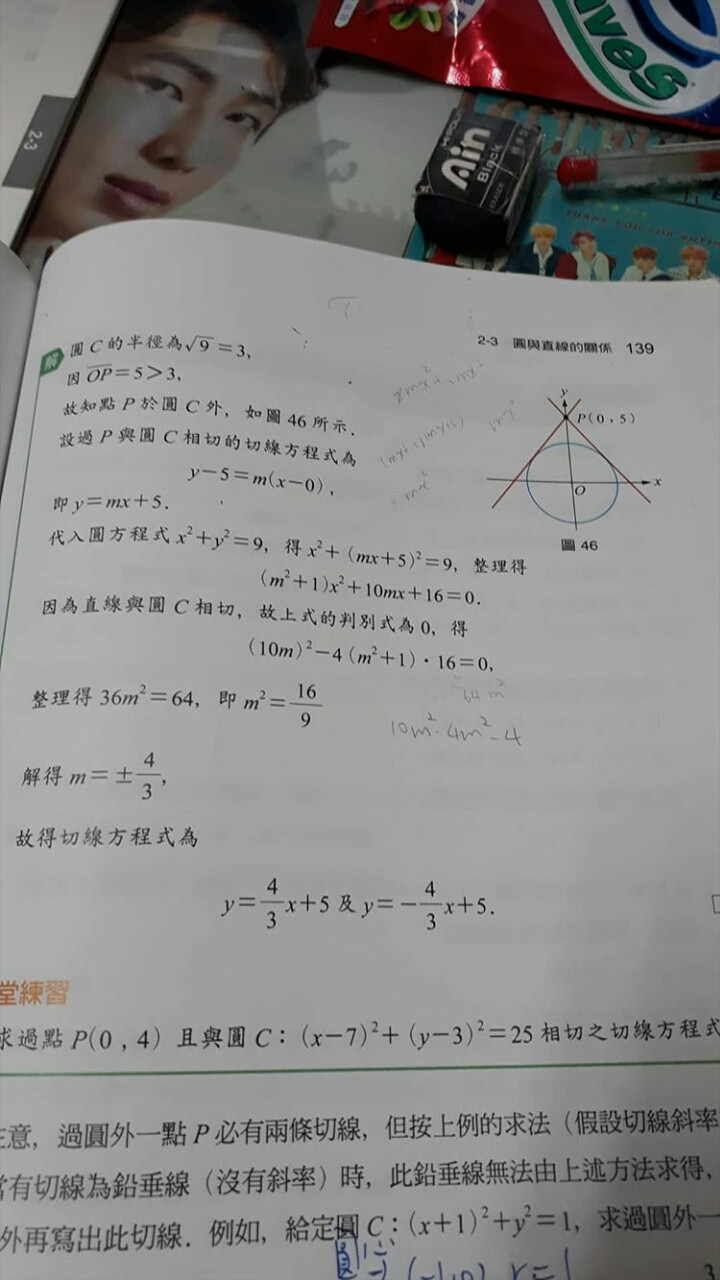 aves
Ain
Black
2-3
THANK YOU FOR
2-3 圓與直線的關係 139
解 圓 C 的半徑為√9=3,
因 OP=5>3,
故知點 P 於圓 C 外, 如圖 46 所示.
設過 P 與圓 C 相切的切線方程式為
y-5=m(x-0),
即 y=mx+5.
y
P(0,5)
x
O
圖 46
代入圓方程式 x²+y²=9, 得 x²+(mx+5)²=9, 整理得
(m²+1)x²+10mx+16=0.
因為直線與圓 C 相切, 故上式的判別式為 0, 得
(10m)²-4(m²+1)·16=0,
64m²
整理得 36m²=64, 即 m²=16/9
10m²-4m²-4
解得 m=±4/3,
故得切線方程式為
y=4/3x+5 及 y=-4/3x+5.
堂練習
求過點 P(0,4) 且與圓 C:(x-7)²+(y-3)²=25 相切之切線方程式
注意, 過圓外一點 P 必有兩條切線, 但按上例的求法(假設切線斜率
當有切線為鉛垂線(沒有斜率)時, 此鉛垂線無法由上述方法求得,
外再寫出此切線. 例如, 給定圓 C:(x+1)²+y²=1, 求過圓外一
圓心(-1,0) r=1